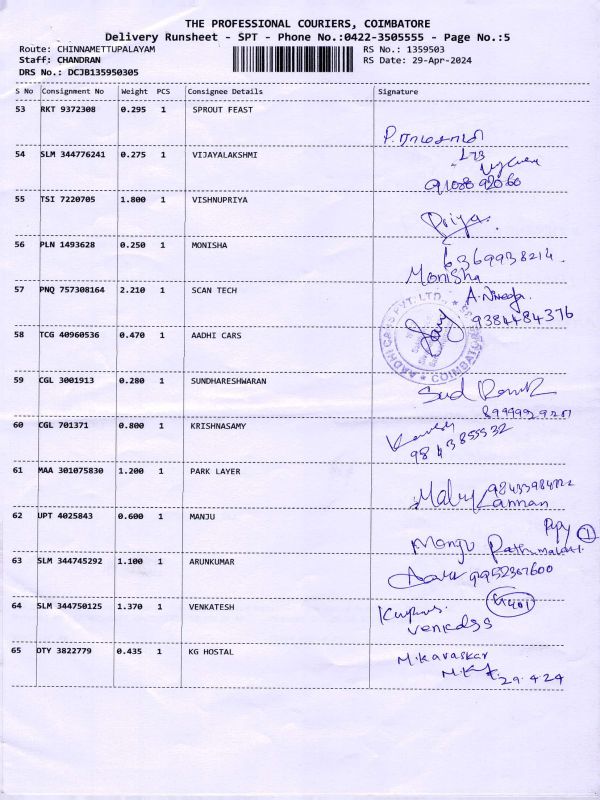 THE PROFESSIONAL COURIERS, COIMBATORE
Delivery Runsheet - SPT - Phone No.:0422-3505555 - Page No.:5
Route: CHINNAMETTUPALAYAM RS No.: 1359503
Staff: CHANDRAN RS Date: 29-Apr-2024
DRS No.: DCJB135950305
S No Consignment No Weight PCS Consignee Details Signature
53 RKT 9372308 0.295 1 SPROUT FEAST
P. ராமசாமி
54 SLM 344776241 0.275 1 VIJAYALAKSHMI
55 TSI 7220705 1.800 1 VISHNUPRIYA
Priya.
56 PLN 1493628 0.250 1 MONISHA
6369938214.
Monisha
57 PNQ 757308164 2.210 1 SCAN TECH
9384484376
58 TCG 40960536 0.470 1 AADHI CARS
AADHI CARS PVT. LTD., COIMBATORE
59 CGL 3001913 0.280 1 SUNDHARESHWARAN
60 CGL 701371 0.800 1 KRISHNASAMY
9843855532
61 MAA 301075830 1.200 1 PARK LAYER
62 UPT 4025843 0.600 1 MANJU
63 SLM 344745292 1.100 1 ARUNKUMAR
9952367600
64 SLM 344750125 1.370 1 VENKATESH
65 DTY 3822779 0.435 1 KG HOSTAL
M.Kavaskar
29.4.24